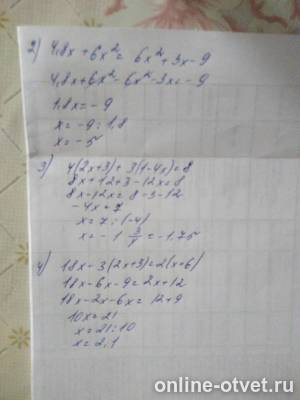 2) 4,8x + 6x² = 6x² + 3x - 9
4,8x + 6x² - 6x² - 3x = -9
1,8x = -9
x = -9 : 1,8
x = -5
3) 4(2x+3) + 3(1-4x) = 8
8x + 12 + 3 - 12x = 8
8x - 12x = 8 - 3 - 12
-4x = 7
x = 7 : (-4)
x = -1 3/4 = -1,75
4) 18x - 3(2x+3) = 2(x+6)
18x - 6x - 9 = 2x + 12
18x - 2x - 6x = 12 + 9
10x = 21
x = 21 : 10
x = 2,1
online-otvet.ru